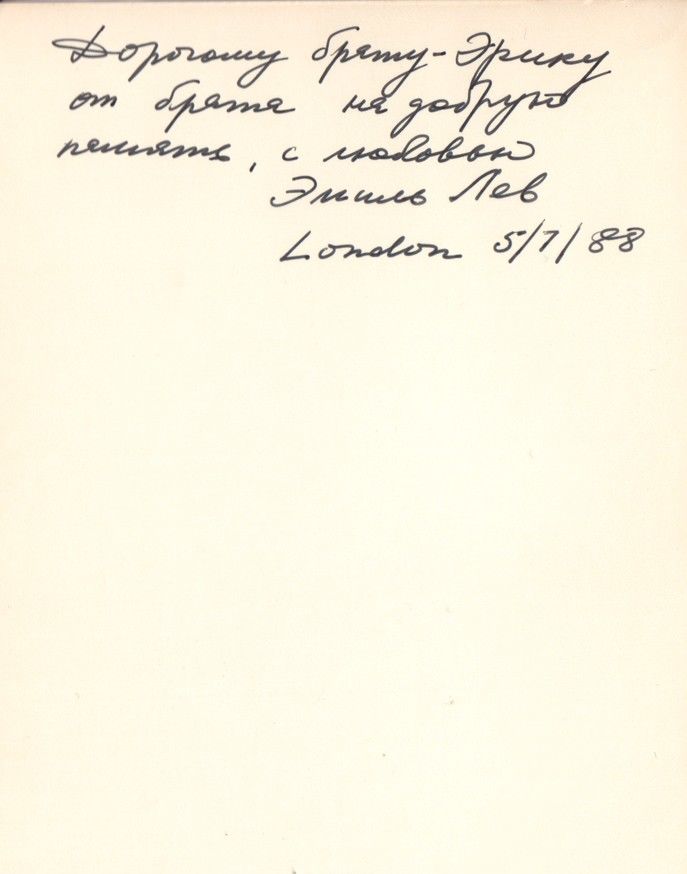 Дорогому брату-Эрику
от брата на добрую
память, с любовью
Эмиль Лев
London 5/7/88